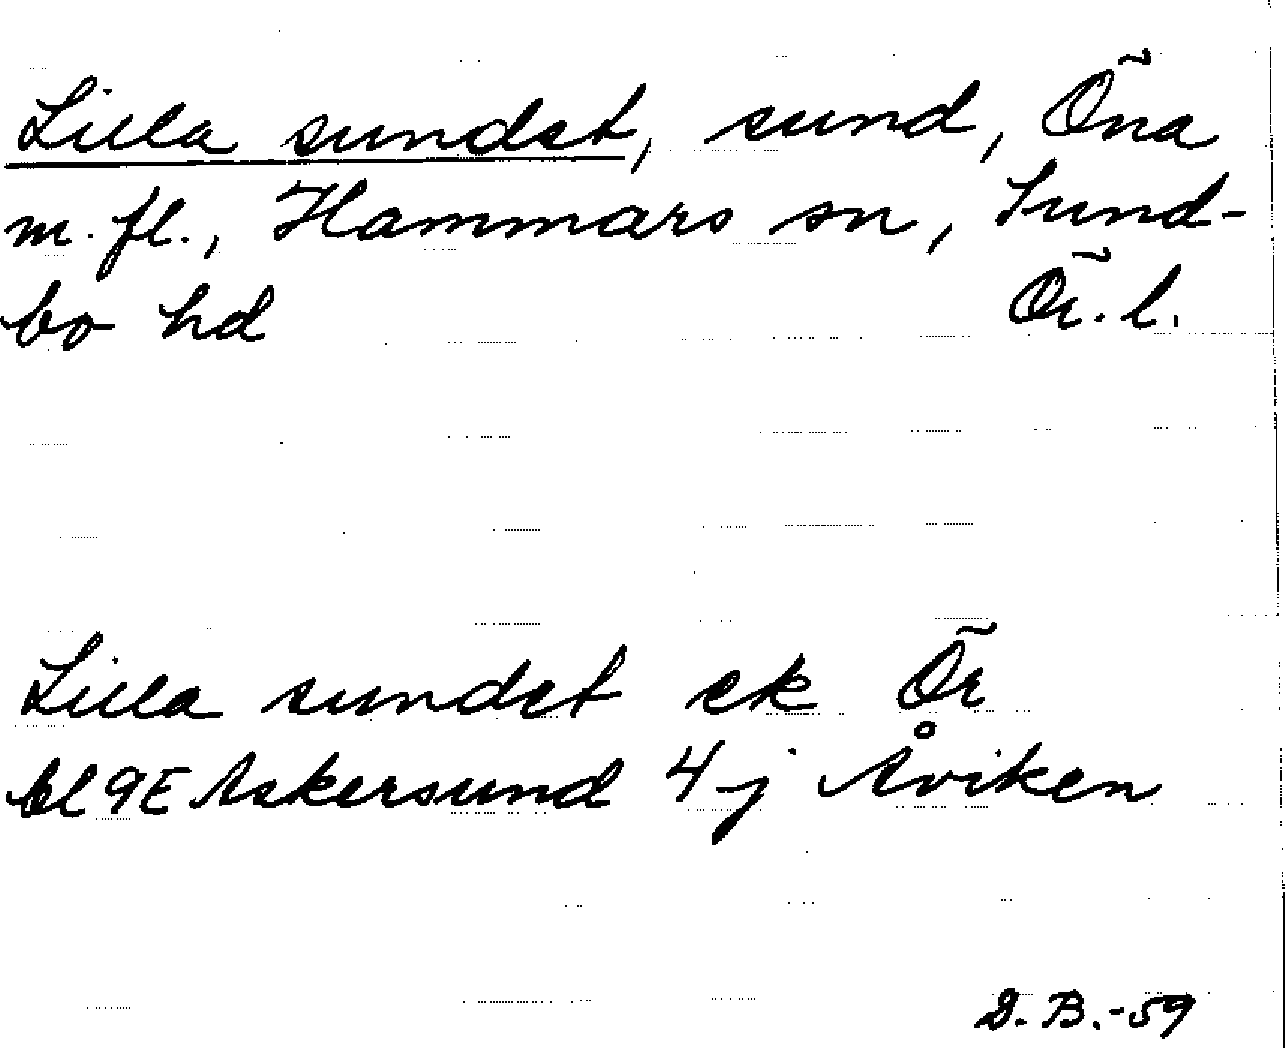 Lilla sundet, sund, Öna
m. fl., Hammars sn, Sund-
bo hd Ör. l.
Lilla sundet ek Ör
bl 9E Askersund 4j Åviken
D. B. -59